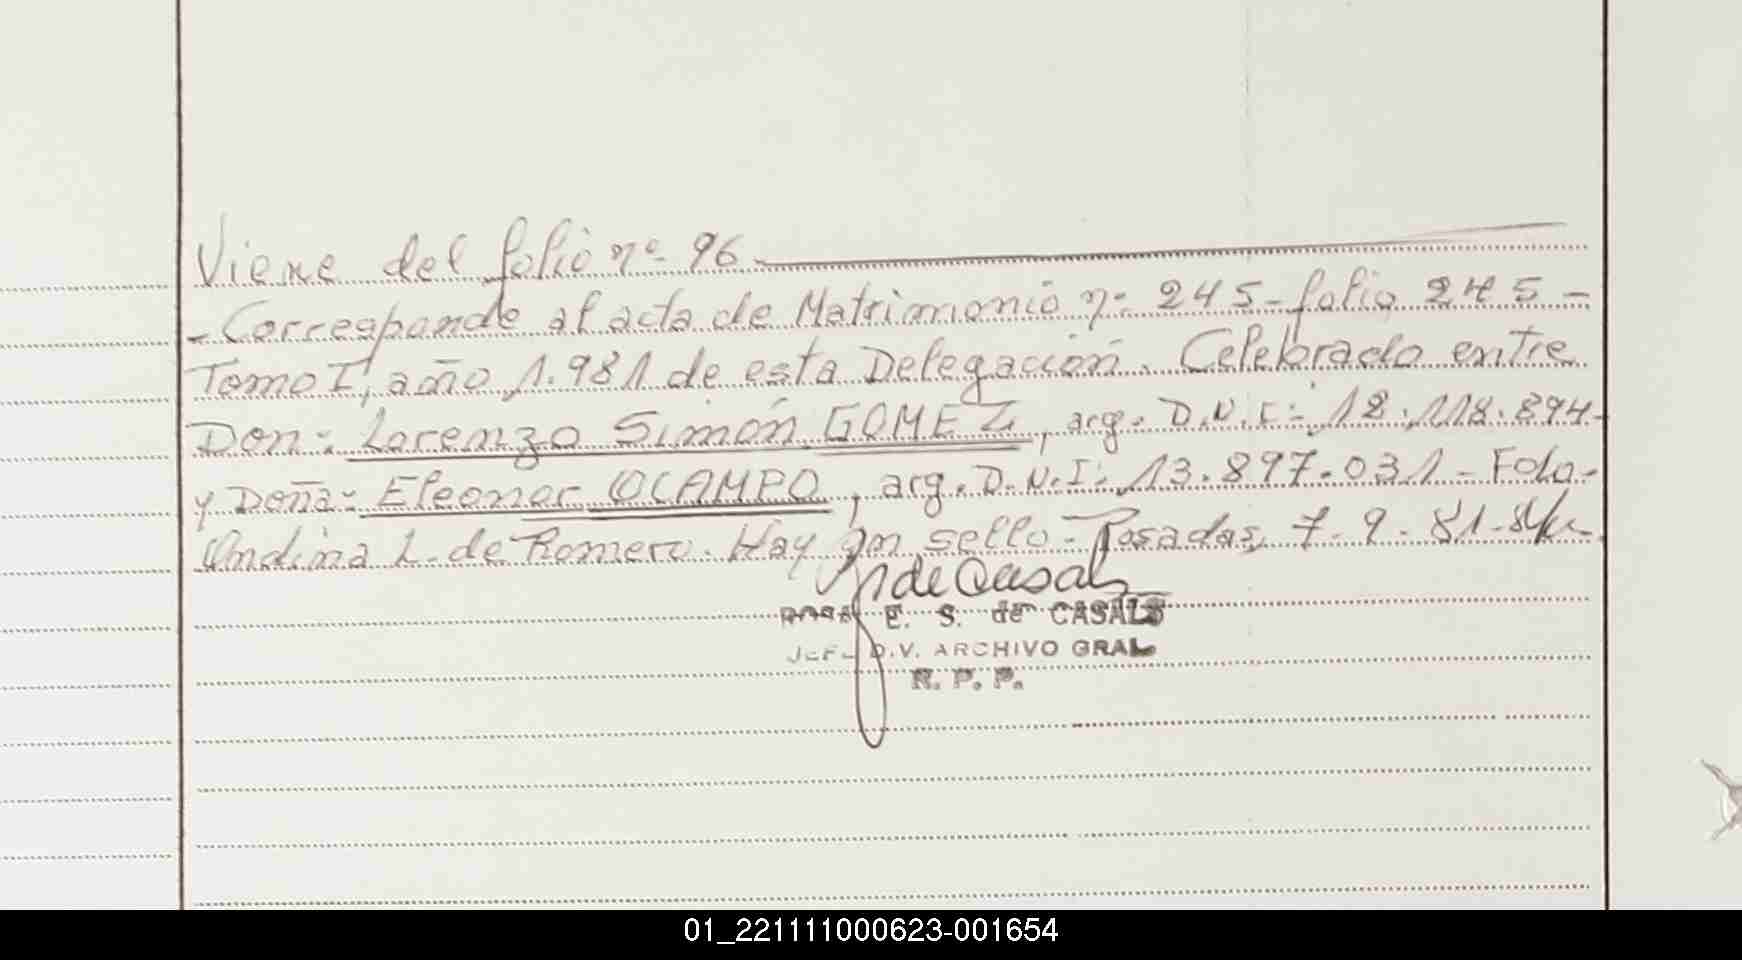 Viene del folio nº 96
- Corresponde al acta de Matrimonio nº 245 - folio 245 -
Tomo I, año 1.981 de esta Delegación. Celebrado entre
Don: Lorenzo Simón GOMEZ, arg. D.N.I: 12.118.894-
y Doña: Eleonor OCAMPO, arg. D.N.I: 13.897.031 - Fdo.
Ondina L. de Romero. Hay un sello - Posadas, 7.9.81.
de Casals
ROSA E. S. de CASALS
JEFE DIV. ARCHIVO GRAL
R. P. P.
01_221111000623-001654